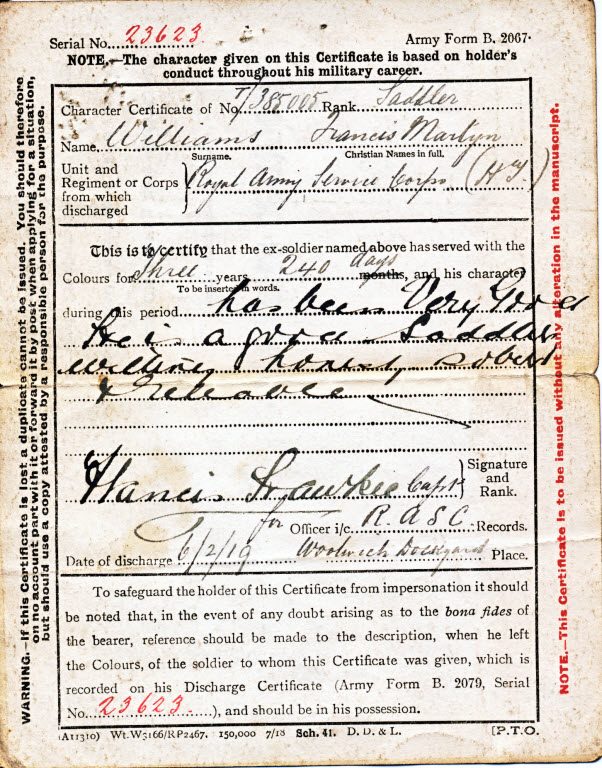 Serial No. 23623 Army Form B. 2067.
NOTE.—The character given on this Certificate is based on holder's
conduct throughout his military career.
Character Certificate of No. T/385005 Rank Saddler
Name Williams Francis Martyn
Surname. Christian Names in full.
Unit and
Regiment or Corps
from which
discharged
Royal Army Service Corps (H.T.)
This is to certify that the ex-soldier named above has served with the
Colours for Three years 240 days months, and his character
To be inserted in words.
during this period has been Very Good
He is a good Saddler
willing honest, sober
& reliable
Francis Capt
Signature
and
Rank.
for Officer i/c. R.A.S.C. Records.
Date of discharge 6/2/19 Woolwich Dockyard Place.
To safeguard the holder of this Certificate from impersonation it should
be noted that, in the event of any doubt arising as to the bona fides of
the bearer, reference should be made to the description, when he left
the Colours, of the soldier to whom this Certificate was given, which is
recorded on his Discharge Certificate (Army Form B. 2079, Serial
No. 23623), and should be in his possession.
(A11310) Wt.W5166/RP2467. 150,000 7/18 Sch. 41. D. D. & L. [P.T.O.
WARNING.—If this Certificate is lost a duplicate cannot be issued. You should therefore
on no account part with it or forward it by post when applying for a situation,
but should use a copy attested by a responsible person for the purpose.
NOTE.—This Certificate is to be issued without any alteration in the manuscript.